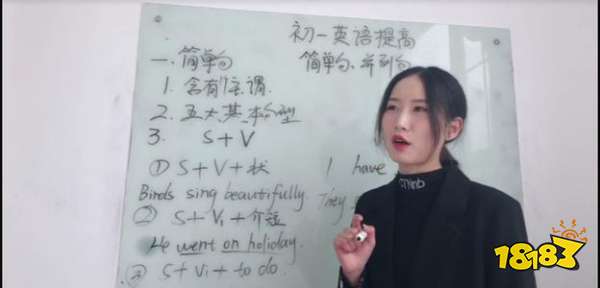 初一英语提高
一、简单句
简单句、并列句
1. 含有1个主谓.
2. 五大基本句型
3. S+V
① S+V+状
I have
Birds sing beautifully.
They
② S+Vi+介短
He went on holiday.
③ S+Vi+to do.
18183